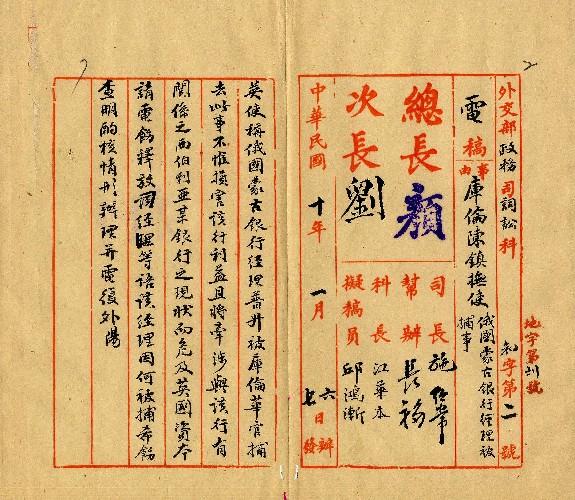 外交部政務司詞訟科
地字第 號
和字第二號
電稿
事由
庫倫陳鎮撫使
俄國蒙古銀行經理被捕事
總長顏
次長劉
司長施紹常
幫辦長福
科長江華本
擬稿員邱鴻漸
中華民國十年一月
六日辦
七日發
英使稱俄國蒙古銀行經理普丹被庫倫華官捕
去此事不惟損害該行利益且將牽涉與該行有
關係之西伯利亞某銀行之現狀而危及英國資本
請電飭釋放該經理等語該經理因何被捕希飭
查明酌核情形辦理并電復外陽